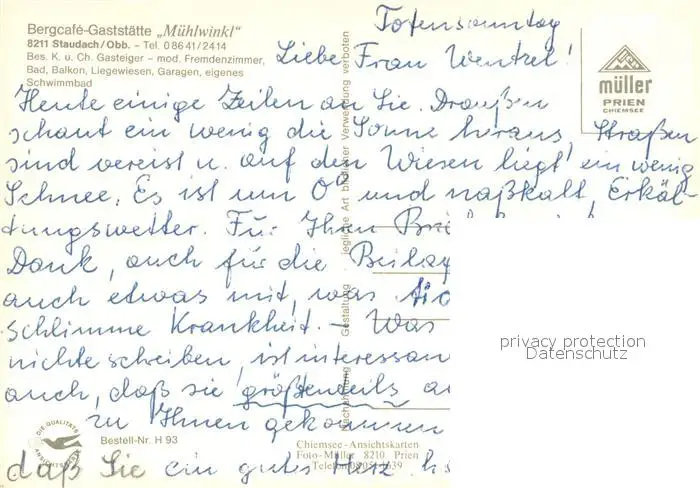 Bergcafé-Gaststätte „Mühlwinkl"
8211 Staudach/Obb. - Tel. 0 86 41 / 24 14
Bes. K. u. Ch. Gasteiger - mod. Fremdenzimmer,
Bad, Balkon, Liegewiesen, Garagen, eigenes
Schwimmbad
müller
PRIEN
CHIEMSEE
Totensonntag
Liebe Frau Wentzel!
Heute einige Zeilen an Sie. Draußen
schaut ein wenig die Sonne heraus, Straßen
sind vereist u. auf den Wiesen liegt ein wenig
Schnee. Es ist um 0° und naßkalt, Erkäl-
tungswetter. Für Ihren
Dank, auch für die
auch etwas mit, was
schlimme Krankheit. – Was
nichte schreiben, ist
auch, daß sie größtenteils
zu Ihnen gekommen
daß Sie ein gutes Herz
Nachahmung Gestaltung jegliche Art bildlicher Verwendung verboten
privacy protection
Datenschutz
DIE QUALITÄTS
ANSICHTSKARTE
Bestell-Nr. H 93
Chiemsee-Ansichtskarten
Foto-Müller 8210 Prien
Telefon